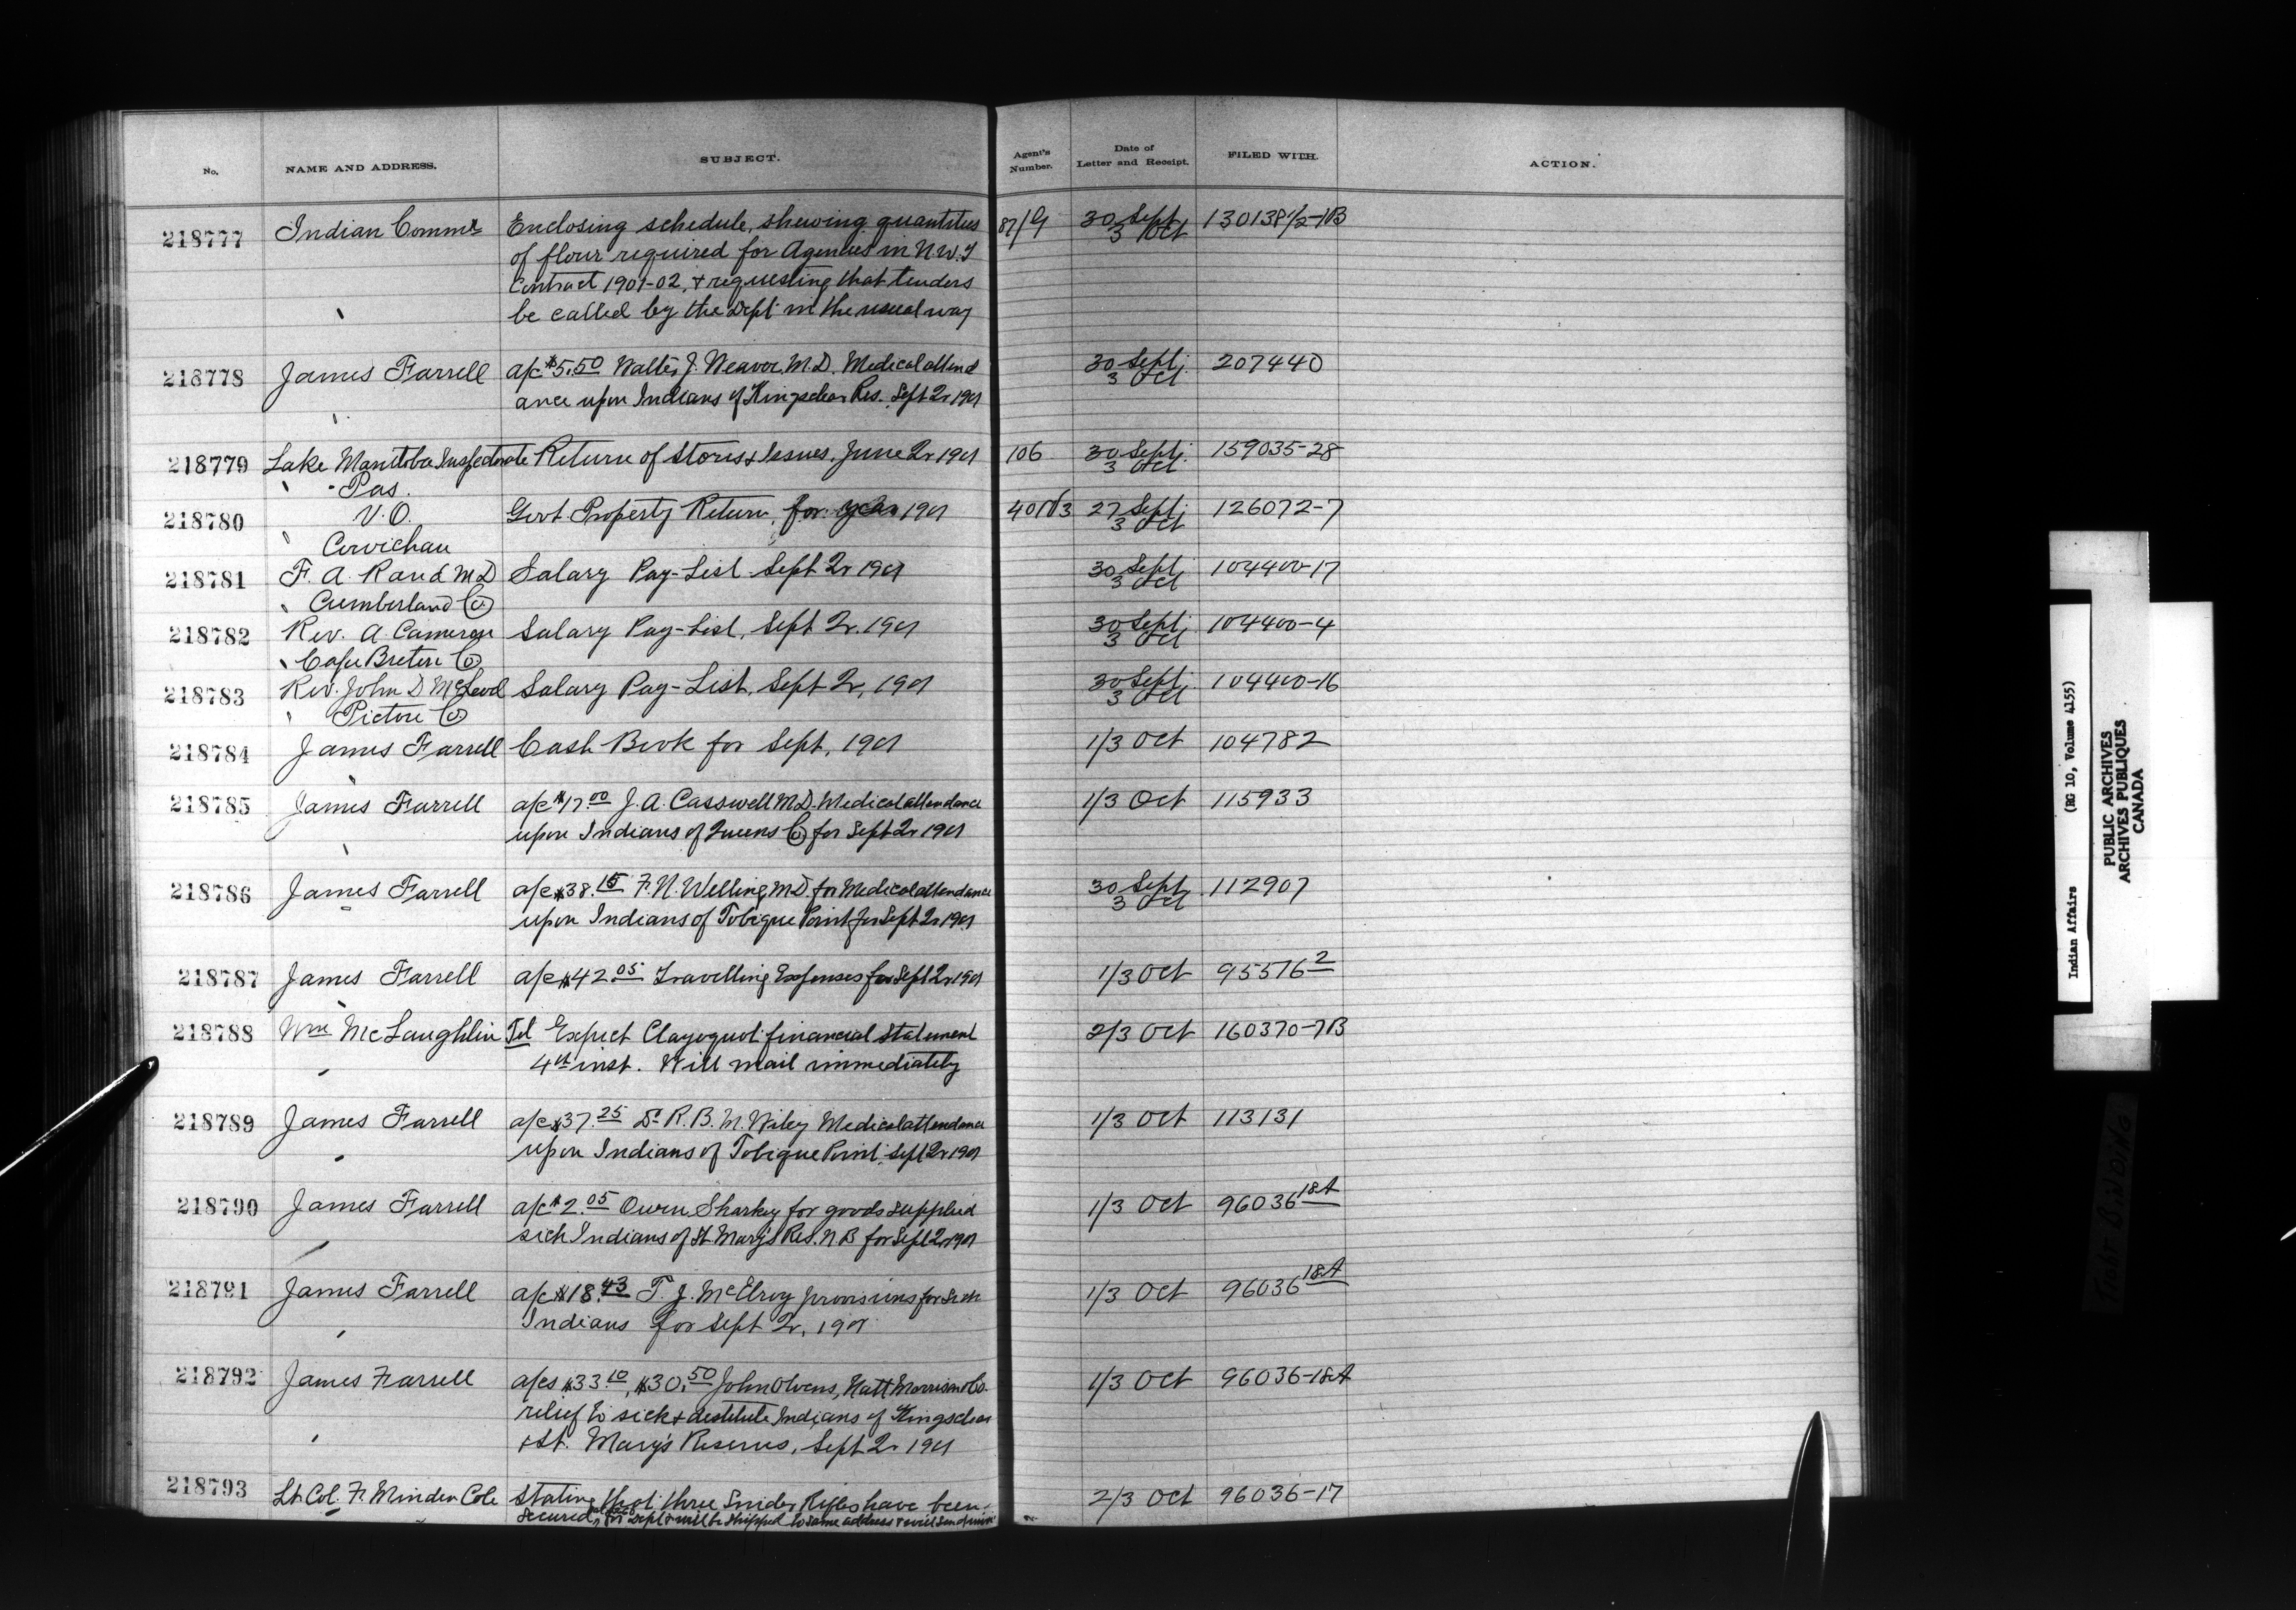 No. NAME AND ADDRESS. SUBJECT. Agent's Number. Date of Letter and Receipt. FILED WITH. ACTION.
218777 Indian Commr Enclosing schedule, shewing quantities 87/G 30 Sept 130138 1/2-1B
of flour required for Agencies in N.W.T 3 Oct
Contract 1901-02, & requesting that tenders
be called by the Dept in the usual way
218778 James Farrell a/c $5.50 Walter J. Weaver M.D. Medical attend 30 Sept. 207440
ance upon Indians of Kingsclear Res. Sept Qr 1901 3 Oct
218779 Lake Manitoba Inspectorate Return of Stores & Issues. June Qr 1901 106 30 Sept. 159035-28
Pas. 3 Oct
218780 V.O. Govt Property Return, for year 1901 27 Sept. 126072-7
Cowichan 3 Oct
218781 F. A. Rand MD Salary Pay-List Sept Qr 1901 30 Sept. 104400-17
Cumberland Co. 3 Oct
218782 Rev. A. Cameron Salary Pay-List, Sept Qr. 1901 30 Sept. 104400-4
Cape Breton Co. 3 Oct
218783 Rev. John D McLeod Salary Pay-List, Sept Qr, 1901 30 Sept. 104400-16
Pictou Co. 3 Oct
218784 James Farrell Cash Book for Sept, 1901 1/3 Oct 104782
218785 James Farrell a/c $17.00 J. A. Casswell M.D. Medical attendance 1/3 Oct 115933
upon Indians of Queens Co. for Sept Qr 1901
218786 James Farrell a/c $38.15 F. N. Welling MD for Medical attendance 30 Sept 112907
upon Indians of Tobique Point for Sept Qr 1901 3 Oct
218787 James Farrell a/c $42.05 Travelling Expenses for Sept Qr 1901 1/3 Oct 95576 2
218788 Wm McLaughlin Tel Expect Clayoquot financial statement 2/3 Oct 160370-7B
4th inst. Will mail immediately
218789 James Farrell a/c $37.25 Dr R. B. M. Wiley Medical attendance 1/3 Oct 113131
upon Indians of Tobique Point. Sept Qr 1901
218790 James Farrell a/c $2.05 Owen Sharkey for goods supplied 1/3 Oct 96036 18A
sick Indians of St Mary's Res. N B for Sept Qr 1901
218791 James Farrell a/c $18.43 T. J. McElroy provisions for sick 1/3 Oct 96036 18A
Indians for Sept Qr, 1901
218792 James Farrell a/cs $33.10, $30.50 John Owens, Hatt Morrison & Co. 1/3 Oct 96036-18A
relief to sick & destitute Indians of Kingsclear
& St. Mary's Reserves, Sept Qr 1901
218793 Lt Col. F. Minden Cole Stating that three Snider Rifles have been 2/3 Oct 96036-17
secured for Dept & will be shipped to same address & will send
Indian Affairs (RG 10, Volume 4155)
PUBLIC ARCHIVES
ARCHIVES PUBLIQUES
CANADA